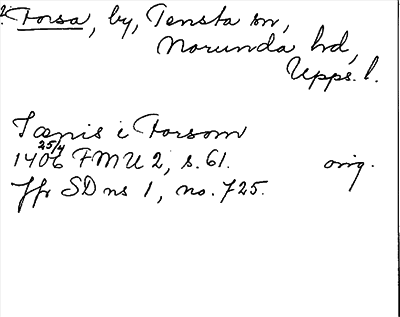 ? Forsa, by, Tensta sn,
Norunda hd,
Upps. l.
Tæpis i Forsom
1406 25/4 FMU 2, s. 61. orig.
Jfr SD ns 1, no. 725.